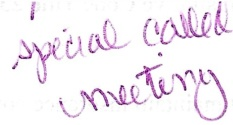 special called
meeting